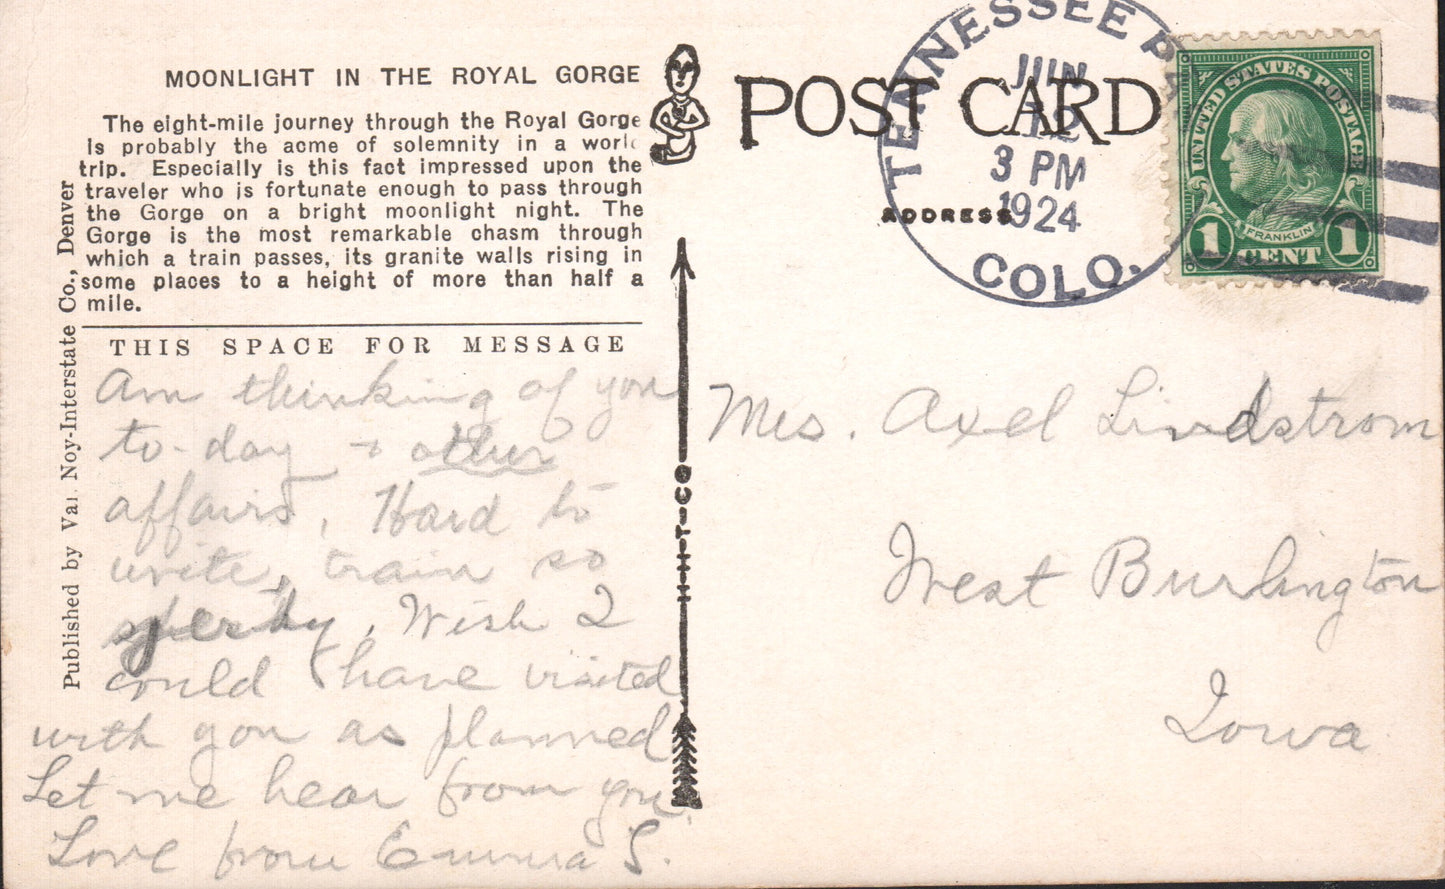 MOONLIGHT IN THE ROYAL GORGE
The eight-mile journey through the Royal Gorge
is probably the acme of solemnity in a world
trip. Especially is this fact impressed upon the
traveler who is fortunate enough to pass through
the Gorge on a bright moonlight night. The
Gorge is the most remarkable chasm through
which a train passes, its granite walls rising in
some places to a height of more than half a
mile.
THIS SPACE FOR MESSAGE
Am thinking of you
to-day + other
affairs, Hard to
write, train so
. Wish I
could have visited
with you as planned
Let me hear from you.
Love from Emma S.
Published by Val Noy-Interstate Co., Denver
CO-T-I-H-H
POST CARD
ADDRESS
TENNESSEE PA
JUN
12
3 PM
1924
COLO.
UNITED STATES POSTAGE
FRANKLIN
1 CENT 1
Mrs. Axel Lindstrom
West Burlington
Iowa